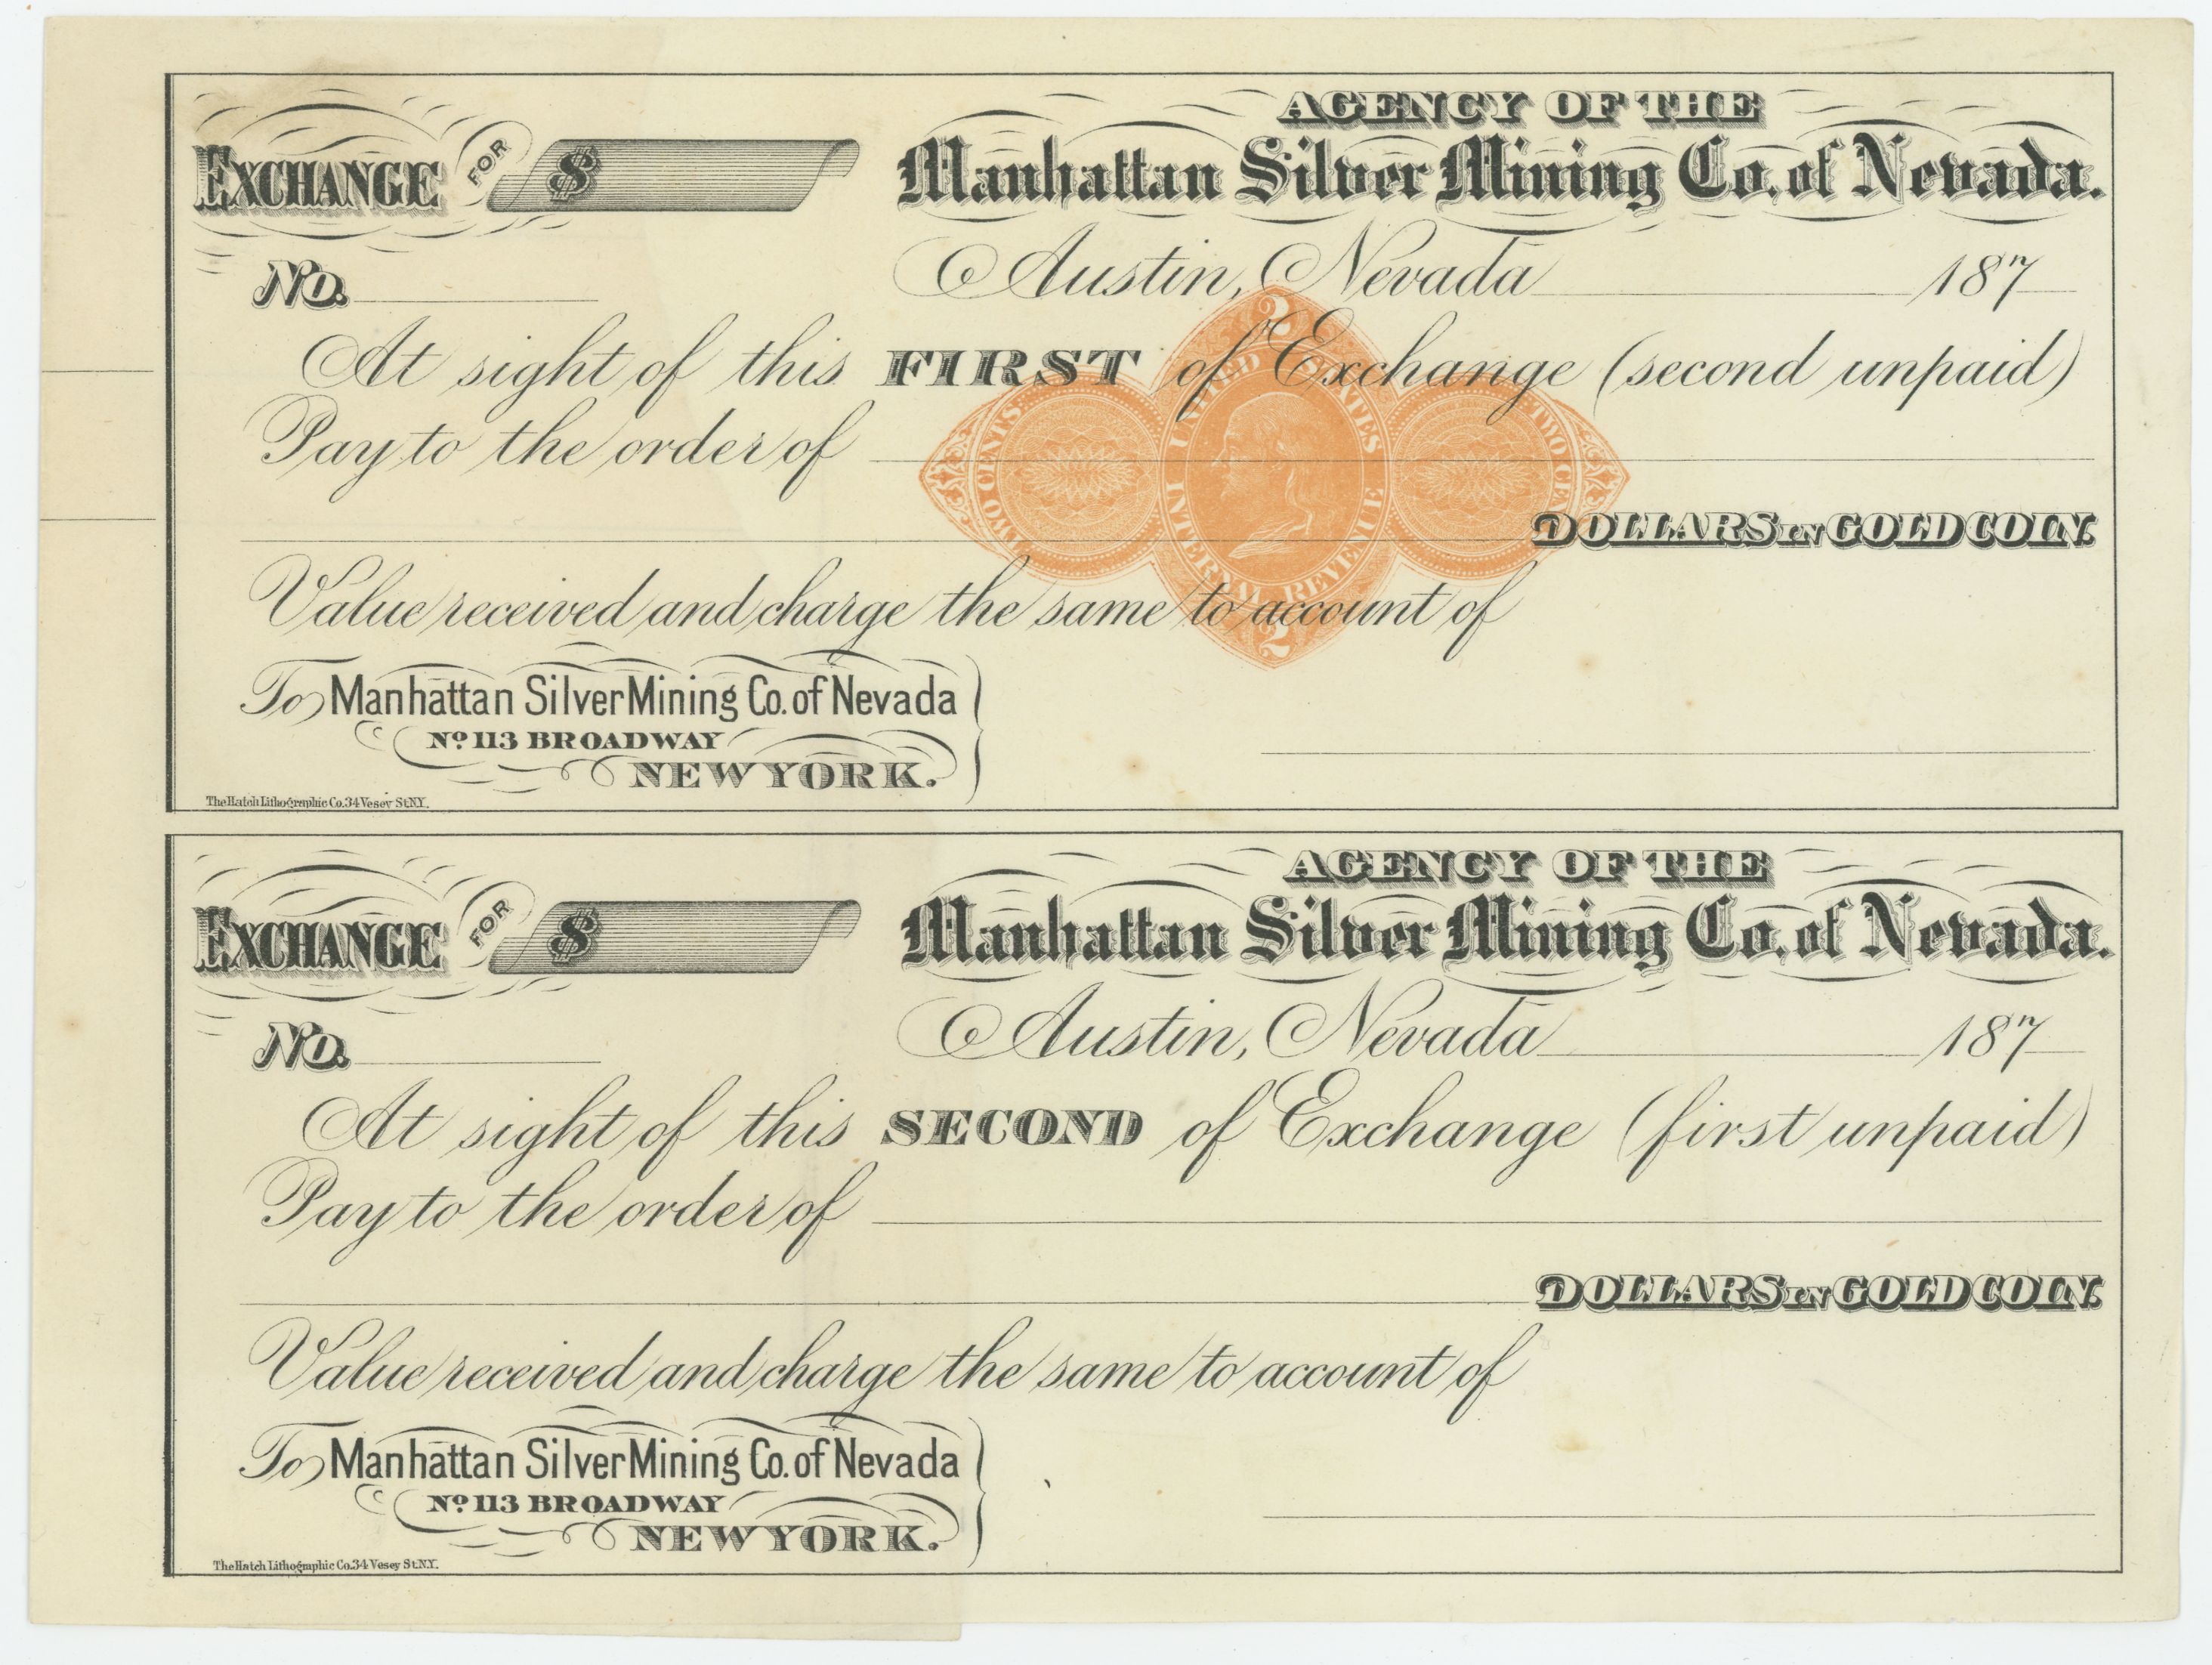 AGENCY OF THE
EXCHANGE FOR $ Manhattan Silver Mining Co. of Nevada.
No. Austin, Nevada 187
At sight of this FIRST of Exchange (second unpaid)
Pay to the order of
DOLLARS IN GOLD COIN.
Value received and charge the same to account of
To Manhattan Silver Mining Co. of Nevada
No 113 BROADWAY
NEW YORK.
The Hatch Lithographic Co. 34 Vesey St. N.Y.
2
UNITED STATES
TWO CENTS
TWO CE
INTERNAL REVENUE
2
AGENCY OF THE
EXCHANGE FOR $ Manhattan Silver Mining Co. of Nevada.
No. Austin, Nevada 187
At sight of this SECOND of Exchange (first unpaid)
Pay to the order of
DOLLARS IN GOLD COIN.
Value received and charge the same to account of
To Manhattan Silver Mining Co. of Nevada
No 113 BROADWAY
NEW YORK.
The Hatch Lithographic Co. 34 Vesey St. N.Y.